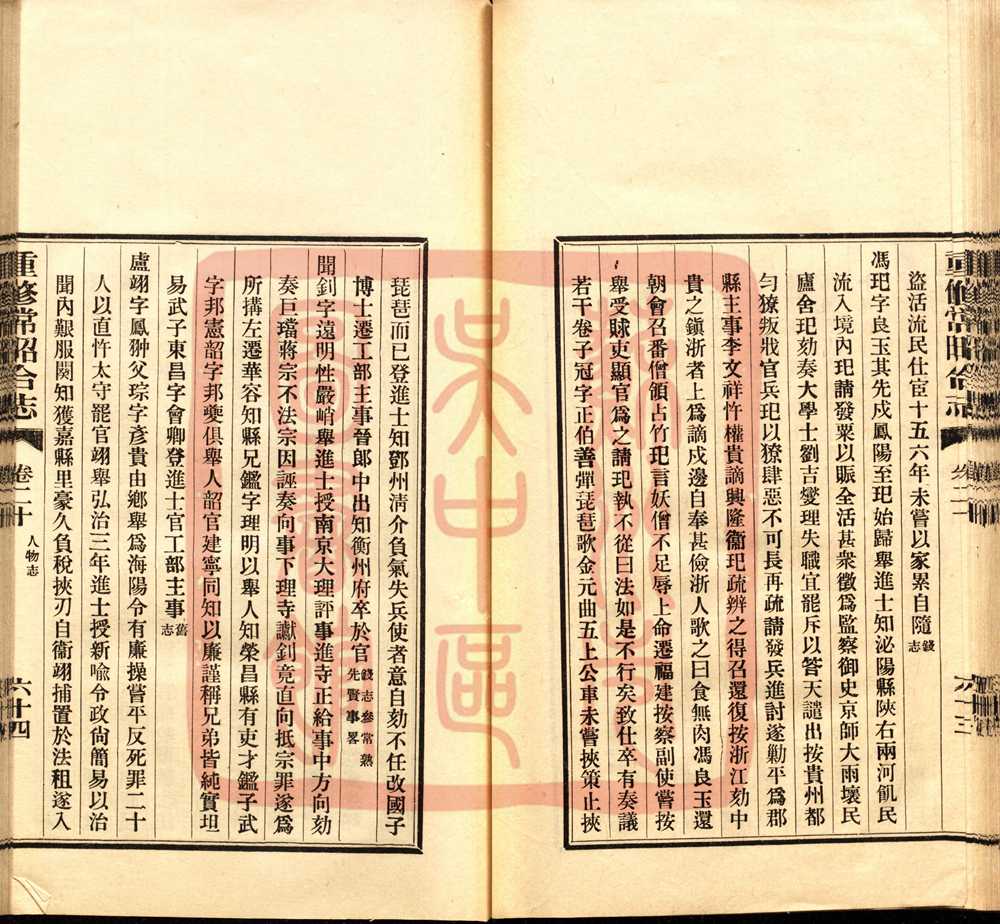 盜活流民仕宦十五六年未嘗以家累自隨錢志
馮玘字良玉其先戍鳳陽至玘始歸舉進士知泌陽縣陝右兩河飢民
流入境內玘請發粟以賑全活甚衆徵爲監察御史京師大雨壞民
廬舍玘劾奏大學士劉吉燮理失職宜罷斥以答天譴出按貴州都
勻獠叛戕官兵玘以獠肆惡不可長再疏請發兵進討遂勦平爲郡
縣主事李文祥忤權貴謫興隆衞玘疏辨之得召還復按浙江劾中
貴之鎭浙者上爲謫戍邊自奉甚儉浙人歌之曰食無肉馮良玉還
朝會召番僧領占竹玘言妖僧不足辱上命遷福建按察副使嘗按
舉受賕吏顯官爲之請玘執不從曰法如是不行矣致仕卒有奏議
若干卷子冠字正伯善彈琵琶歌金元曲五上公車未嘗挾策止挾
琵琶而已登進士知鄧州淸介負氣失兵使者意自劾不任改國子
博士遷工部主事晉郎中出知衡州府卒於官錢志參常熟先賢事畧
聞釗字遠明性嚴峭舉進士授南京大理評事進寺正給事中方向劾
奏巨璫蔣宗不法宗因誣奏向事下理寺讞釗竟直向抵宗罪遂爲
所搆左遷華容知縣兄鑑字理明以舉人知榮昌縣有吏才鑑子武
字邦憲韶字邦夔俱舉人韶官建寧同知以廉謹稱兄弟皆純實坦
易武子東昌字會卿登進士官工部主事舊志
盧翊字鳳翀父琮字彥貴由鄉舉爲海陽令有廉操嘗平反死罪二十
人以直忤太守罷官翊舉弘治三年進士授新喩令政尙簡易以治
聞內艱服闋知獲嘉縣里豪久負稅挾刃自衞翊捕置於法租遂入
重修常昭合志
卷二十
人物志
六十四